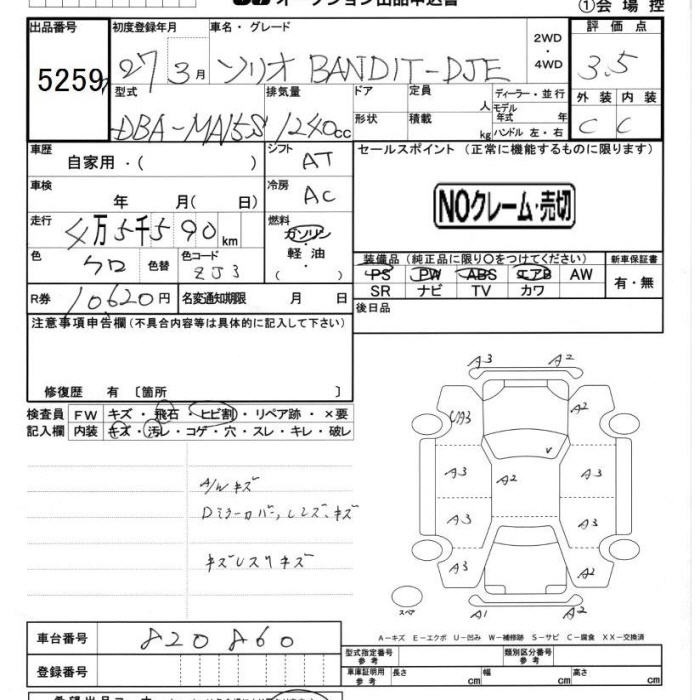 オークション出品申込書
①会場控
出品番号 初度登録年月 車名・グレード 2WD ・ 4WD 評価点
5259 27 3月 ソリオ BANDIT-DJE 3.5
型式 排気量 ドア 定員 人 ディーラー・並行 外装 内装
DBA-MA15S 1240cc 形状 積載 kg モデル年式 年 ハンドル 左・右 C C
車歴 自家用・( ) シフト AT セールスポイント (正常に機能するものに限ります)
車検 年 月( 日) 冷房 AC
NOクレーム・売切
走行 4万5千590km 燃料 ガソリン・軽油・( )
色 クロ 色替 色コード ZJ3
装備品 (純正品に限り○をつけてください) 新車保証書
PS PW ABS エアB AW 有・無
SR ナビ TV カワ
R券 10620円 名変通知期限 月 日
後日品
注意事項申告欄(不具合内容等は具体的に記入して下さい)
修復歴 有 〔箇所 〕
検査員 FW キズ・飛石・ヒビ割・リペア跡・×要
記入欄 内装 キズ・汚レ・コゲ・穴・スレ・キレ・破レ
A/Wキズ
Dミラーカバー,レンズ、キズ
キズレスリキズ
A3 A2
A3 A2
A3 A2 A3
A3 A3
A3 A2
スペア A1 A2
A-キズ E-エクボ U-凹み W-補修跡 S-サビ C-腐食 XX-交換済
車台番号 820860
型式指定番号 参考 類別区分番号 参考
登録番号
車庫証明用 参考 長さ cm 幅 cm 高さ cm